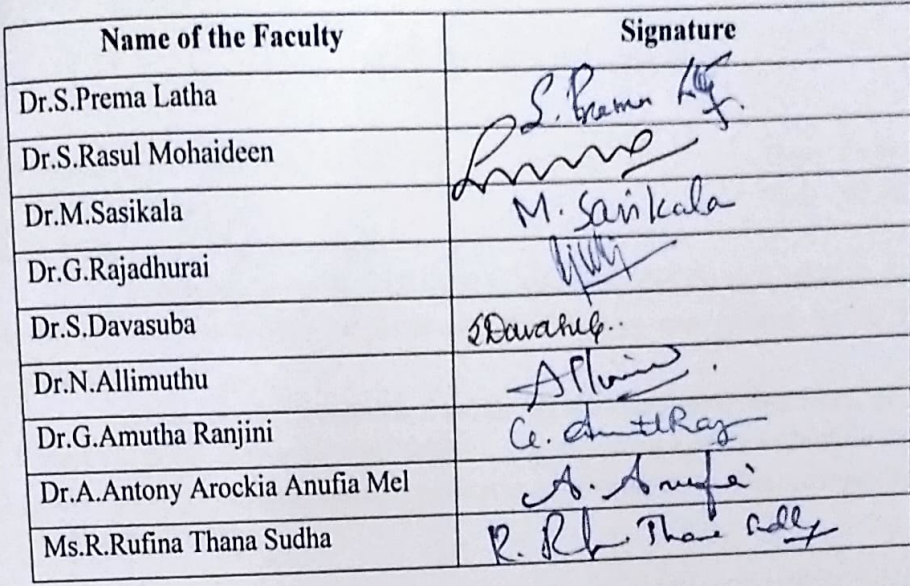 Name of the Faculty Signature
Dr.S.Prema Latha S. Prema
Dr.S.Rasul Mohaideen
Dr.M.Sasikala M. Sasikala
Dr.G.Rajadhurai
Dr.S.Davasuba
Dr.N.Allimuthu
Dr.G.Amutha Ranjini G.
Dr.A.Antony Arockia Anufia Mel A. Anufia
Ms.R.Rufina Thana Sudha R.